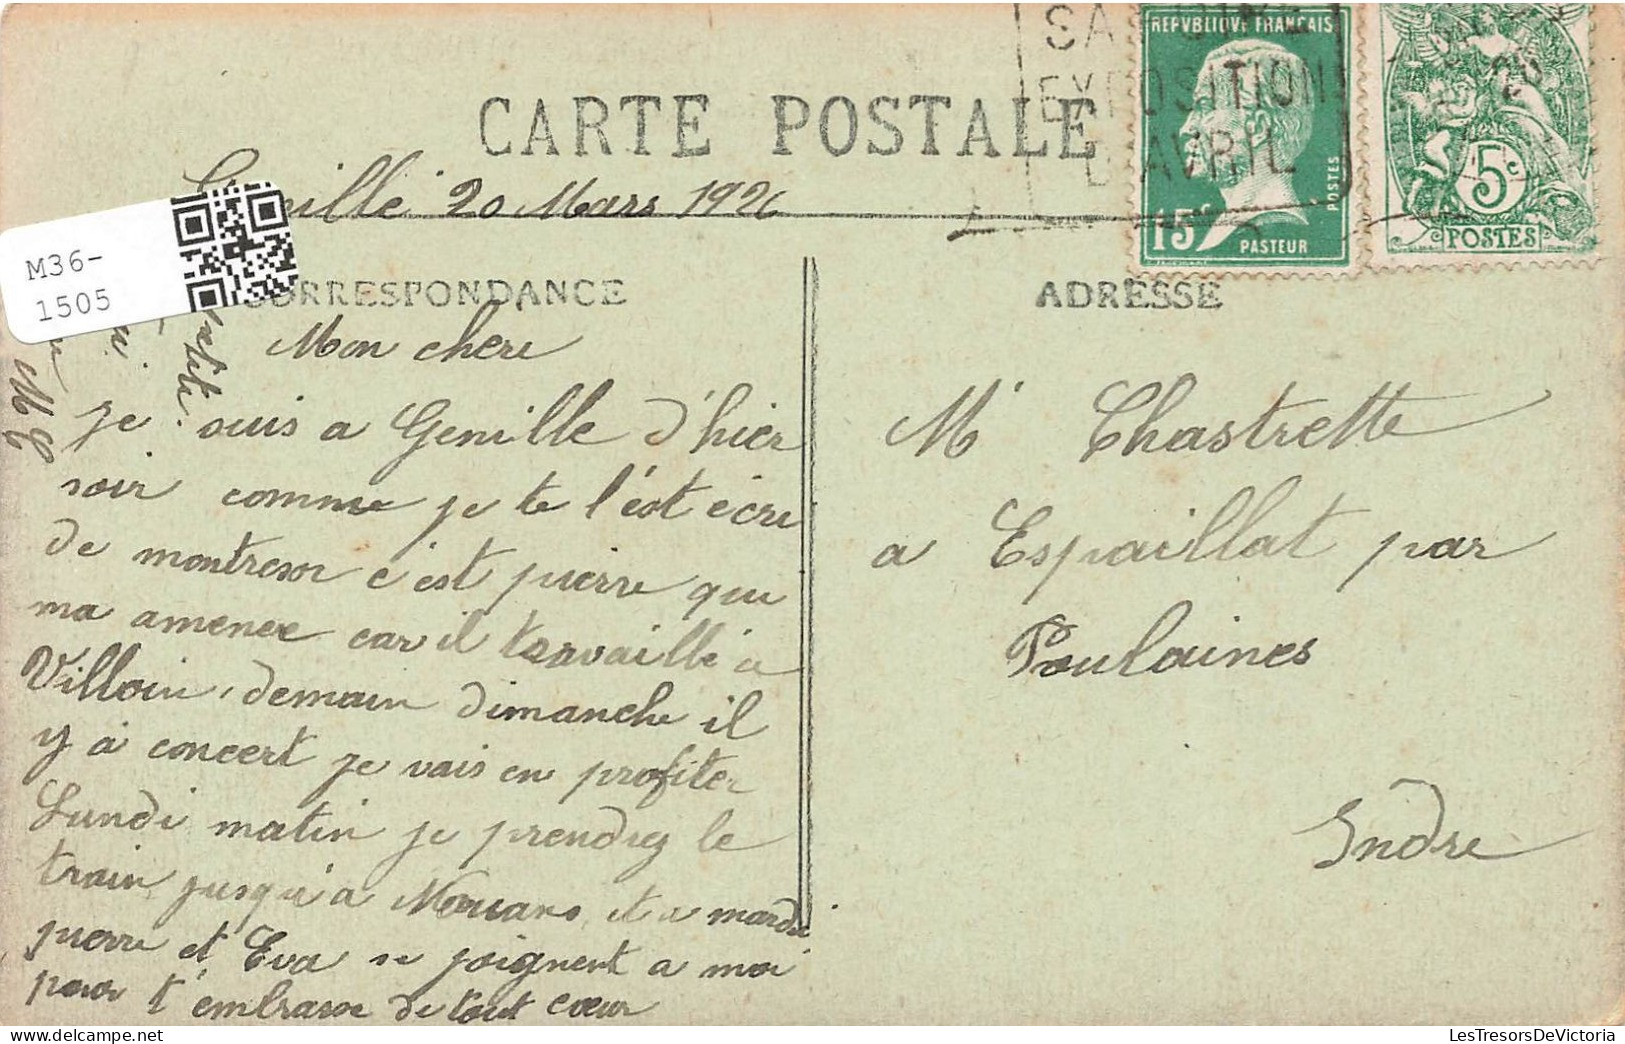 CARTE POSTALE
EXPOSITION
D'AVRIL
REPVBLIQVE FRANÇAISE
POSTES
15c
PASTEUR
5c
POSTES
Genillé 20 Mars 1926
M36-
1505
CORRESPONDANCE
ADRESSE
Mon chere
je suis a Genille d'hier
soir comme je te l'est écri
de montresor c'est pierre qui
ma amenee car il travaille a
Villoin, demain dimanche il
y a concert je vais en profiter
Lundi matin je prendrez le
train jusqu'a et a mardi
pierre et Eva se joignent a moi
pour t'embrasse de tout cœur
Mr Chastrette
a Espaillat par
Poulaines
Indre
LesTresorsDeVictoria